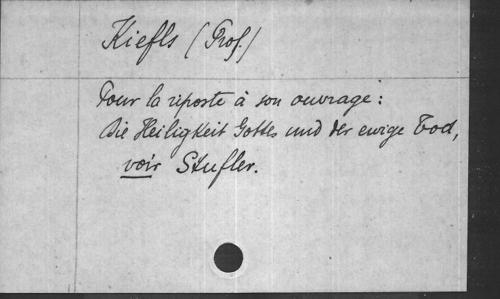 Kiefls (Prof.)
Pour la riposte à son ouvrage :
Die Heiligkeit Gottes und der ewige Tod,
voir Stufler.